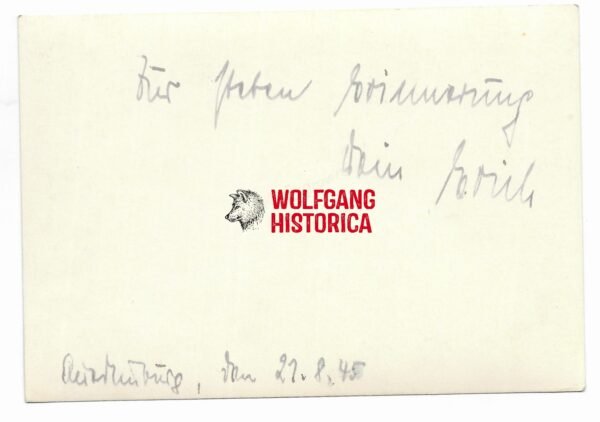 Zur steten Erinnerung
Dein Erich
WOLFGANG
HISTORICA
Quedlinburg, den 21.8.45